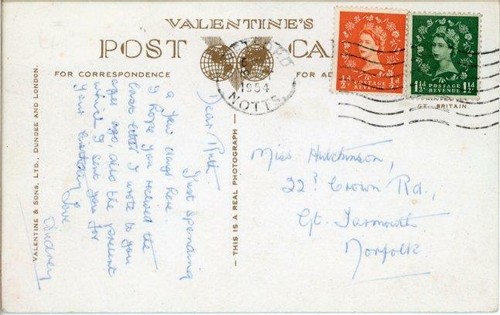 VALENTINE'S
POST CARD
FOR CORRESPONDENCE
FOR AD
1954
NOTTS.
½d POSTAGE REVENUE ½d
1½d POSTAGE REVENUE 1½d
GT. BRITAIN
VALENTINE & SONS, LTD., DUNDEE AND LONDON.
— THIS IS A REAL PHOTOGRAPH —
Dear Ruth,
Just spending
a few days here
I hope you received the
letter I wrote to you
ages ago, also the present
which I sent you for
Your Birthday
Love
Audrey
Miss Hutchinson,
22ᴮ Crown Rd.,
Gt. Yarmouth
Norfolk